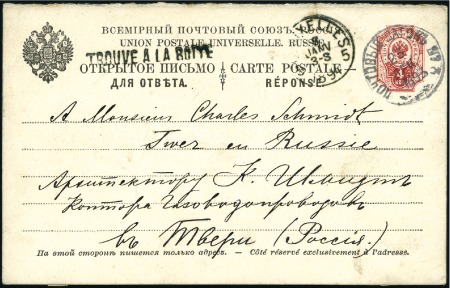 ВСЕМІРНЫЙ ПОЧТОВЫЙ СОЮЗЪ. РОССІЯ
UNION POSTALE UNIVERSELLE. RUSSIE
TROUVÉ A LA BOITE
ОТКРЫТОЕ ПИСЬМО CARTE POSTALE
ДЛЯ ОТВѢТА. RÉPONSE.
JANV
5
A Monsieur Charles Schmidt
Twer en Russie
Архитектору К. Шмидт
Контора Газоводопроводовъ
въ Твери (Россія.)
На этой сторонѣ пишется только адресъ. — Côté réservé exclusivement à l'adresse.